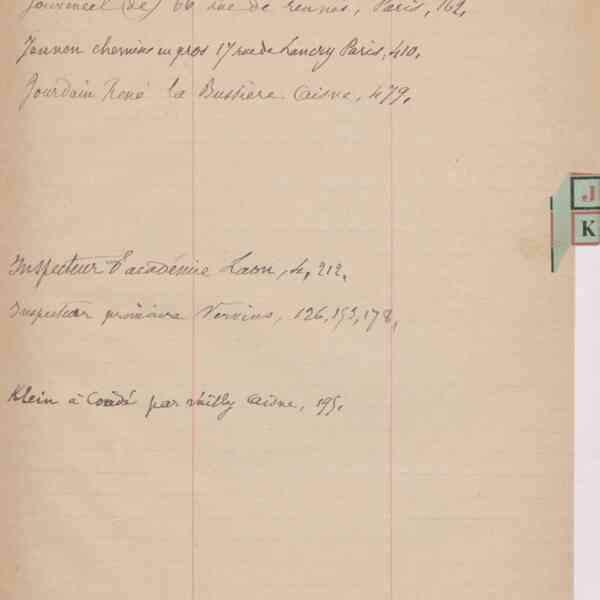 Jouvencel (de) 66 rue de rennes, Paris, 162,
Jeanon chemins en gros 17 rue de Lancry Paris, 410,
Jourdain René la Bussière Aisne, 479,
J
K
Inspecteur d'académie Laon, 4, 212,
Inspecteur primaire Vervins, 126, 153, 178,
Klein à Condé par Vailly Aisne, 195,